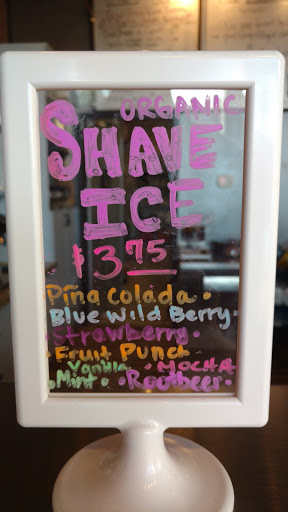 ORGANIC
SHAVE
ICE
$3.75
Piña Colada •
Blue Wild Berry •
Strawberry •
• Fruit Punch
Vanilla • MOCHA
• Mint • • Rootbeer •